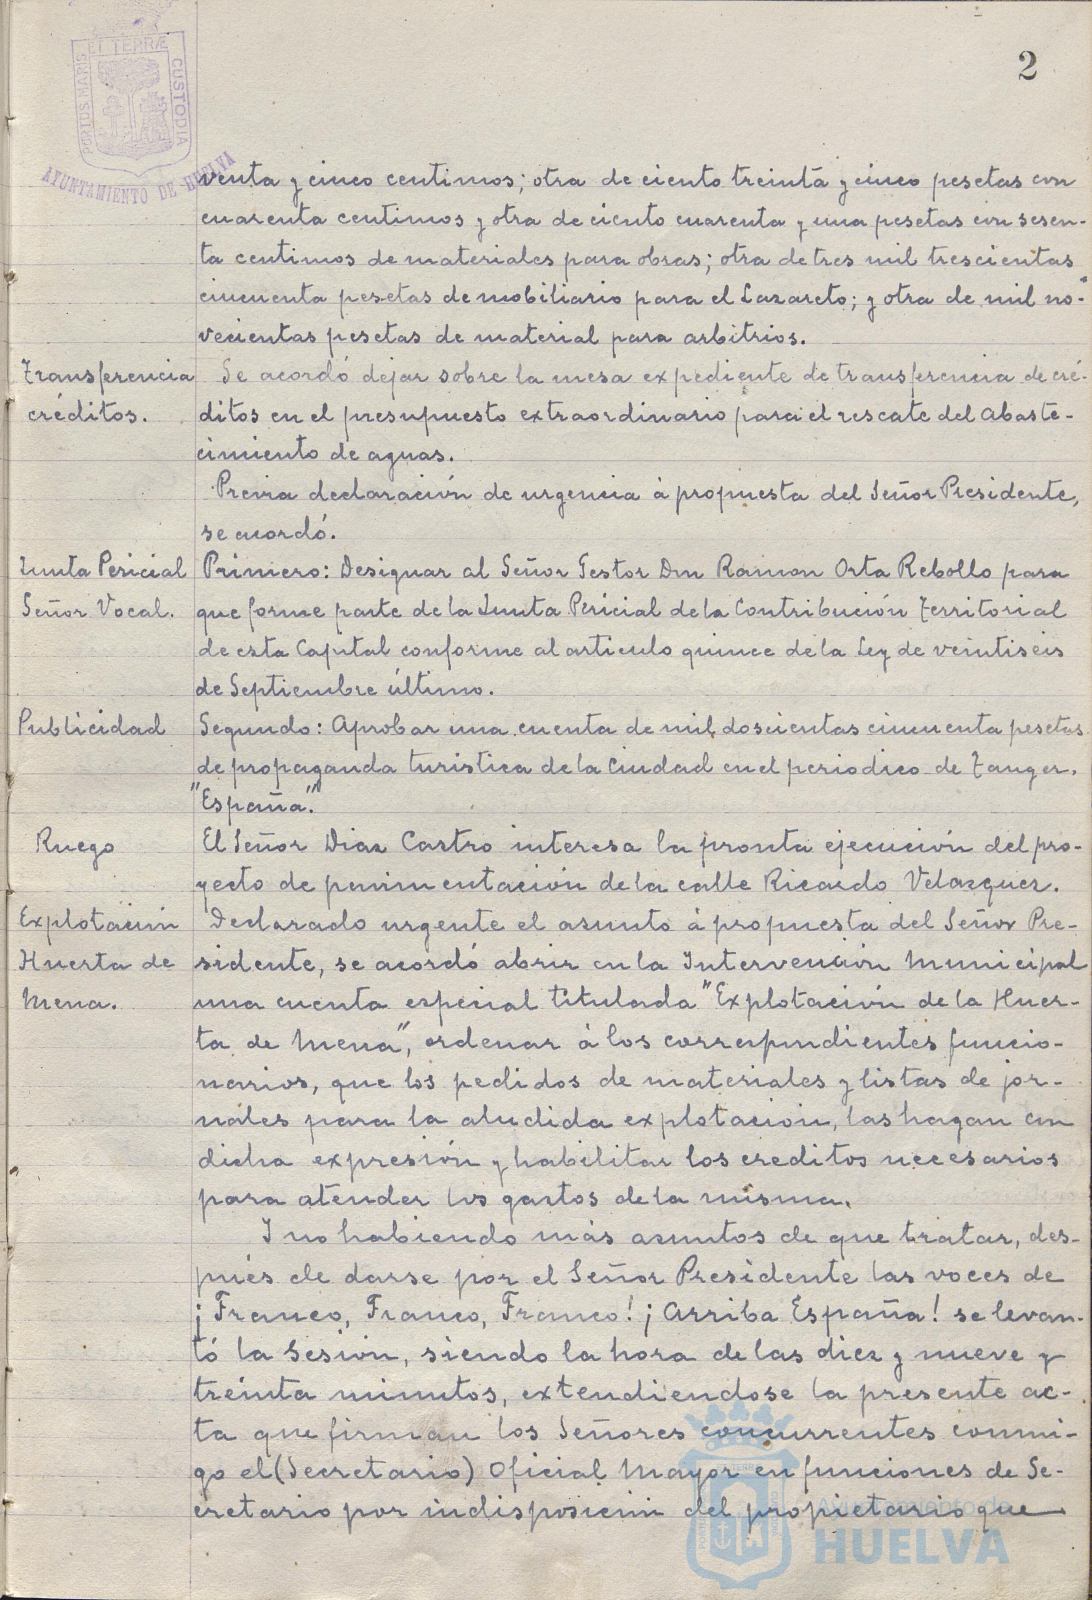 2
PORTUS MARIS ET TERRÆ CUSTODIA
AYUNTAMIENTO DE HUELVA
venta y cinco centimos; otra de ciento treinta y cinco pesetas con
cuarenta centimos y otra de ciento cuarenta y una pesetas con sesen-
ta centimos de materiales para obras; otra de tres mil trescientas
cincuenta pesetas de mobiliario para el Lazareto; y otra de mil no-
vecientas pesetas de material para arbitrios.
Transferencia
créditos.
Se acordó dejar sobre la mesa expediente de transferencia de cré-
ditos en el presupuesto extraordinario para el rescate del Abaste-
cimiento de aguas.
Previa declaración de urgencia à propuesta del Señor Presidente,
se acordó.
Junta Pericial
Señor Vocal.
Primero: Designar al Señor Gestor Don Ramon Orta Rebollo para
que forme parte de la Junta Pericial de la Contribución Territorial
de esta Capital conforme al articulo quince de la Ley de veintiseis
de Septiembre último.
Publicidad
Segundo: Aprobar una cuenta de mil doscientas cincuenta pesetas
de propaganda turistica de la Ciudad en el periodico de Tanger.
"España".
Ruego
El Señor Diaz Castro interesa la pronta ejecución del pro-
yecto de pavimentación de la calle Ricardo Velazquez.
Explotación
Huerta de
Mena.
Declarado urgente el asunto à propuesta del Señor Pre-
sidente, se acordó abrir en la Intervención Municipal
una cuenta especial titulada "Explotación de la Huer-
ta de Mena", ordenar à los correspondientes funcio-
narios, que los pedidos de materiales y listas de jor-
nales para la aludida explotacion, las hagan con
dicha expresión y habilitar los creditos necesarios
para atender los gastos de la misma.
Y no habiendo más asuntos de que tratar, des-
pués de darse por el Señor Presidente las voces de
¡Franco, Franco, Franco! ¡Arriba España! se levan-
tó la Sesión, siendo la hora de las diez y nueve y
treinta minutos, extendiendose la presente ac-
ta que firman los Señores concurrentes conmi-
go el (Secretario) Oficial Mayor en funciones de Se-
cretario por indisposición del propietario que
Ayuntamiento de
HUELVA